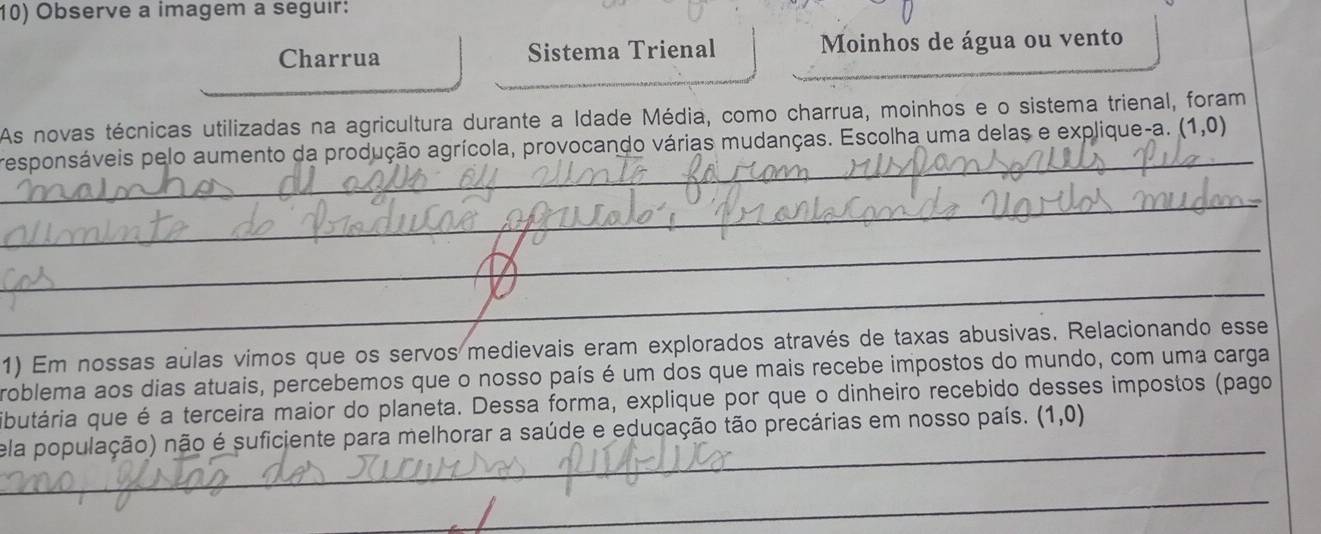 10) Observe a imagem a seguir:
Charrua
Sistema Trienal
Moinhos de água ou vento
As novas técnicas utilizadas na agricultura durante a Idade Média, como charrua, moinhos e o sistema trienal, foram
responsáveis pelo aumento da produção agrícola, provocando várias mudanças. Escolha uma delas e explique-a. (1,0)
mainhos de agua ou vento foram responsaveis pelo
aumento do produção agricola, provocando varias mudan-
ças
1) Em nossas aulas vimos que os servos medievais eram explorados através de taxas abusivas. Relacionando esse
roblema aos dias atuais, percebemos que o nosso país é um dos que mais recebe impostos do mundo, com uma carga
ibutária que é a terceira maior do planeta. Dessa forma, explique por que o dinheiro recebido desses impostos (pago
ela população) não é suficiente para melhorar a saúde e educação tão precárias em nosso país. (1,0)
gestão dos recursos